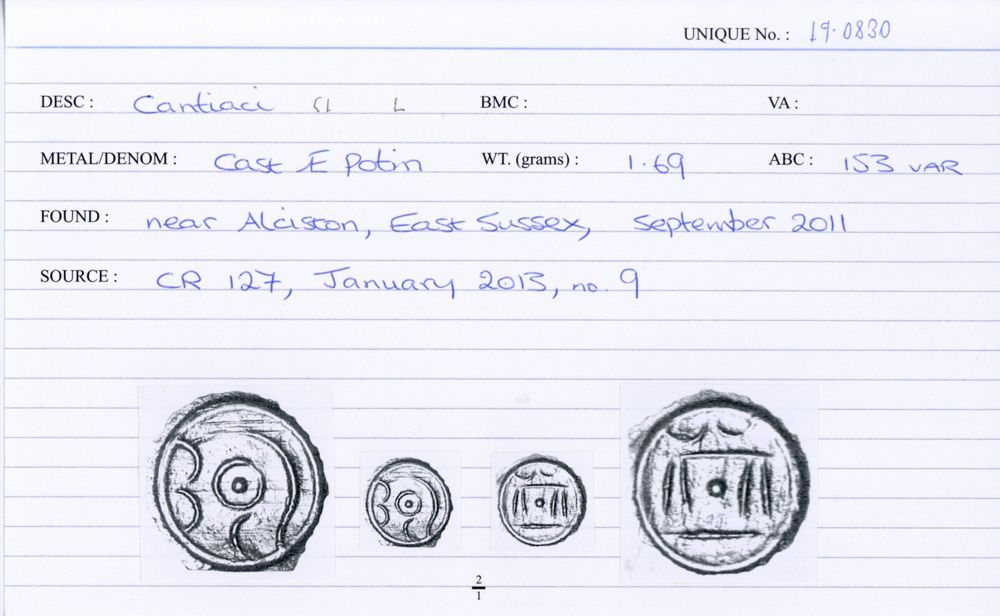 UNIQUE No. : 19.0830
DESC : Cantiaci L BMC : VA :
METAL/DENOM : Cast Æ Potin WT. (grams) : 1.69 ABC : 153 VAR
FOUND : near Alciston, East Sussex, September 2011
SOURCE : CR 127, January 2013, no. 9
2
1